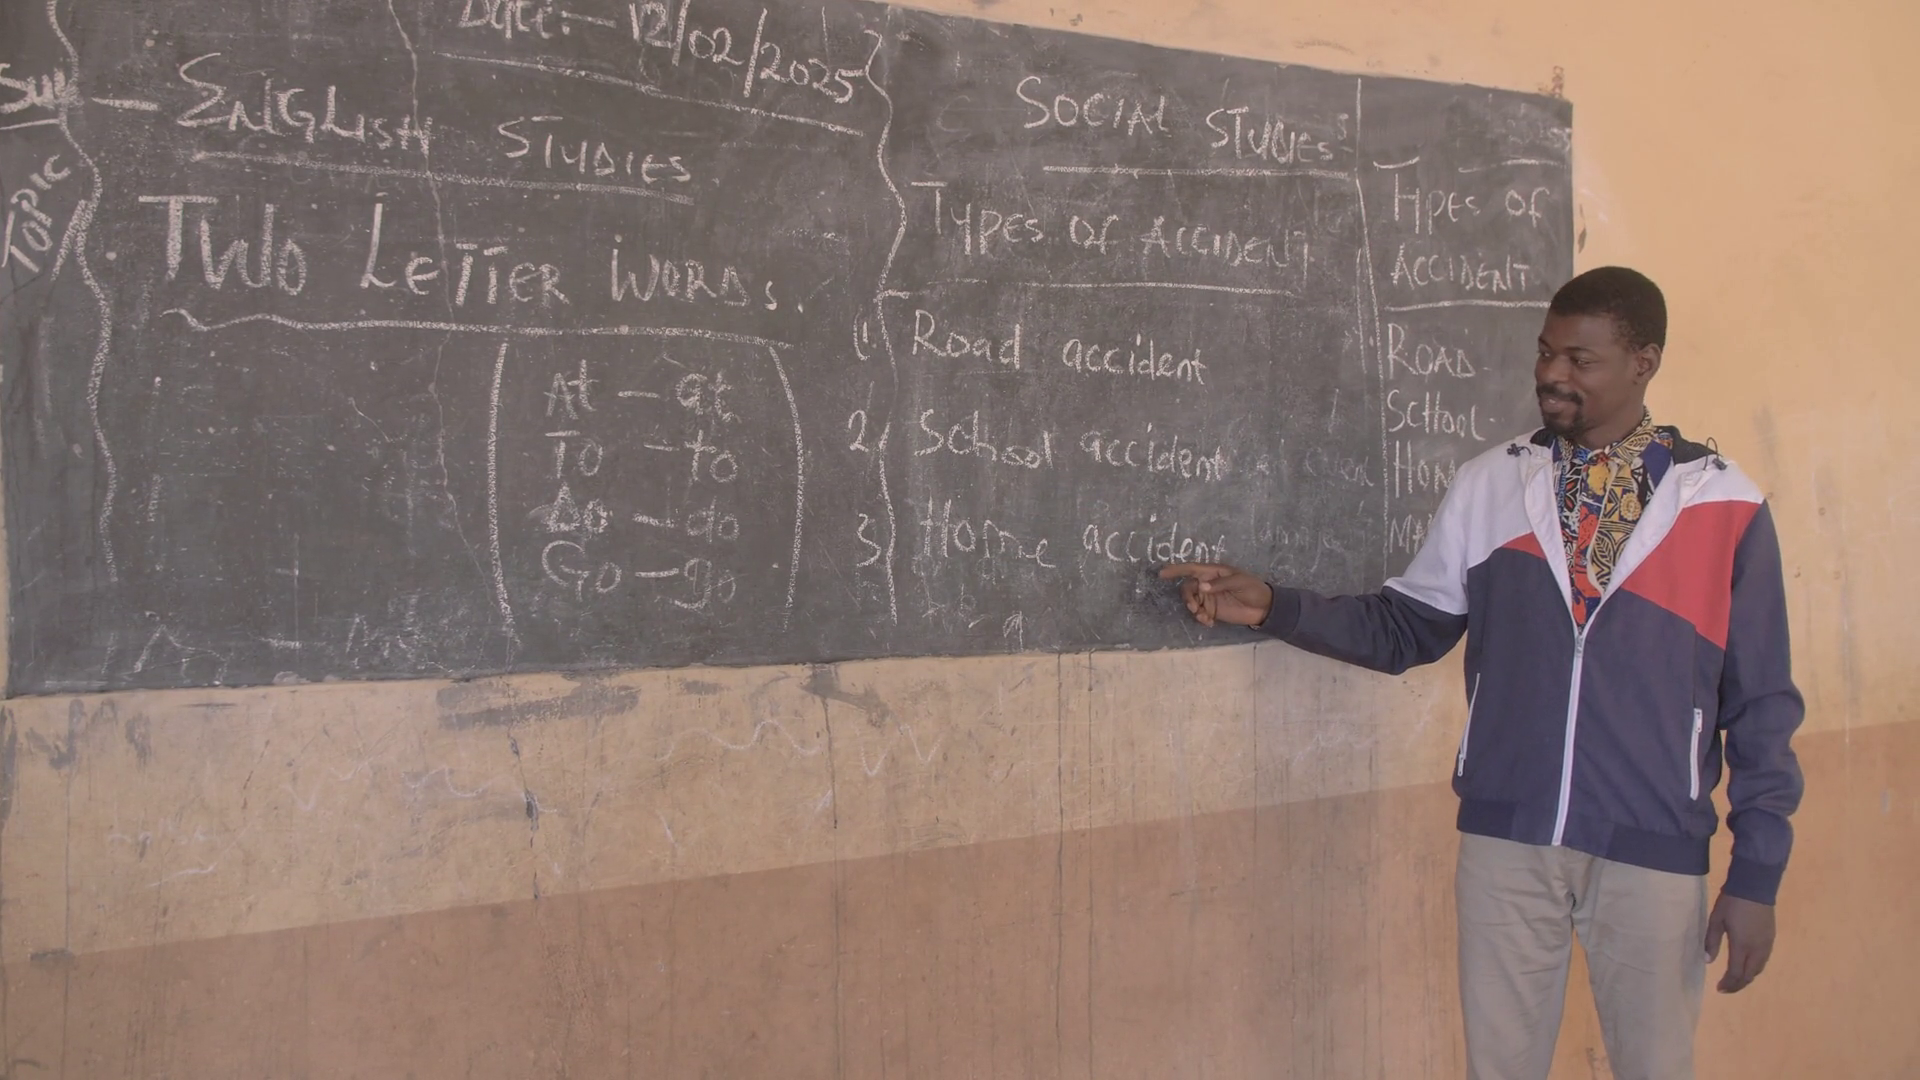 Date:- 12/02/2025
Sub - ENGLISH STUDIES
TOPIC
TWO LETTER WORDS.
At - at
To - to
Do - do
Go - go
SOCIAL STUDIES
TYPES OF ACCIDENT
(1. Road accident
2, School accident
3 Home accident
TYPES OF
ACCIDENT
ROAD-
SCHOOL-